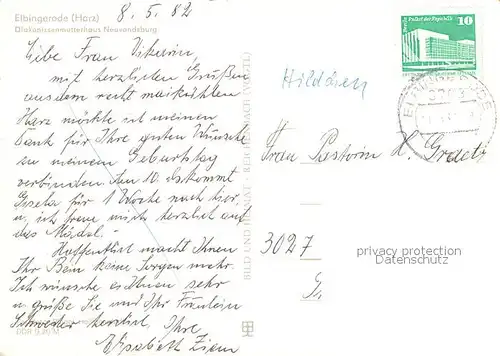 Elbingerode (Harz)
Diakonissenmutterhaus Neuvandsburg
8. 5. 82
Liebe Frau Vikarin
mit herzlichen Grüßen
aus dem recht maikühlen
Harz möchte ich meinen
Dank für Ihre guten Wünsche
zu meinem Geburtstag
verbinden. Am 10. ds kommt
Gisela für 1 Woche nach hier
u. ich freue mich herzlich auf
das Mädel.
Hoffentlich macht Ihnen
Ihr Bein keine Sorgen mehr.
Ich wünsche es Ihnen sehr
u grüße Sie und Ihr Fräulein
Schwester herzlich, Ihre
Elisabeth Ziem
BILD UND HEIMAT · REICHENBACH (VOGTL)
Palast der Republik
10
DDR
3703
Frau Pastorin H. Graetz
3027
G.
privacy protection
Datenschutz